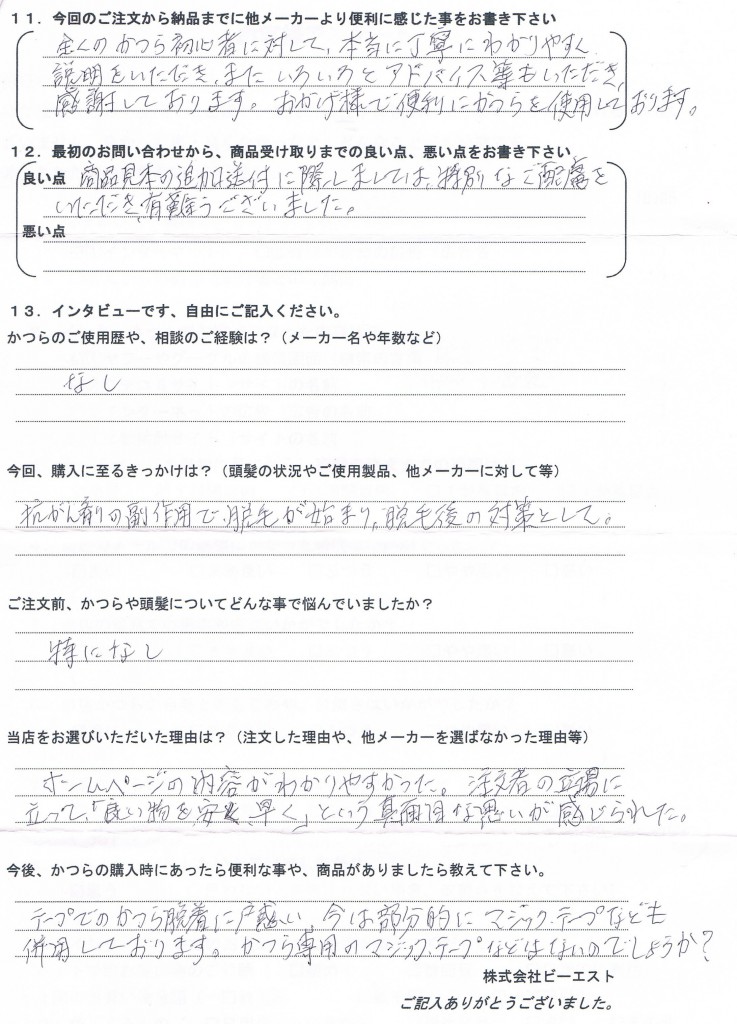 １１．今回のご注文から納品までに他メーカーより便利に感じた事をお書き下さい
全くのかつら初心者に対して、本当に丁寧にわかりやすく
説明をいただき、また いろいろと アドバイス等もいただき、
感謝しております。おかげ様で便利にかつらを使用しております。
１２．最初のお問い合わせから、商品受け取りまでの良い点、悪い点をお書き下さい
良い点 商品見本の追加送付に際しましては、特別なご配慮を
いただき、有難うございました。
悪い点
１３．インタビューです、自由にご記入ください。
かつらのご使用歴や、相談のご経験は？（メーカー名や年数など）
なし
今回、購入に至るきっかけは？（頭髪の状況やご使用製品、他メーカーに対して等）
抗がん剤の副作用で、脱毛が始まり、脱毛後の対策として。
ご注文前、かつらや頭髪についてどんな事で悩んでいましたか？
特になし
当店をお選びいただいた理由は？（注文した理由や、他メーカーを選ばなかった理由等）
ホームページの内容がわかりやすかった。注文者の立場に
立って、「良い物を、安く、早く」という真面目な思いが感じられた。
今後、かつらの購入時にあったら便利な事や、商品がありましたら教えて下さい。
テープでのかつら脱着に戸惑い、今は部分的にマジックテープなども
併用しております。かつら専用のマジックテープなどはないのでしょうか？
株式会社ビーエスト
ご記入ありがとうございました。